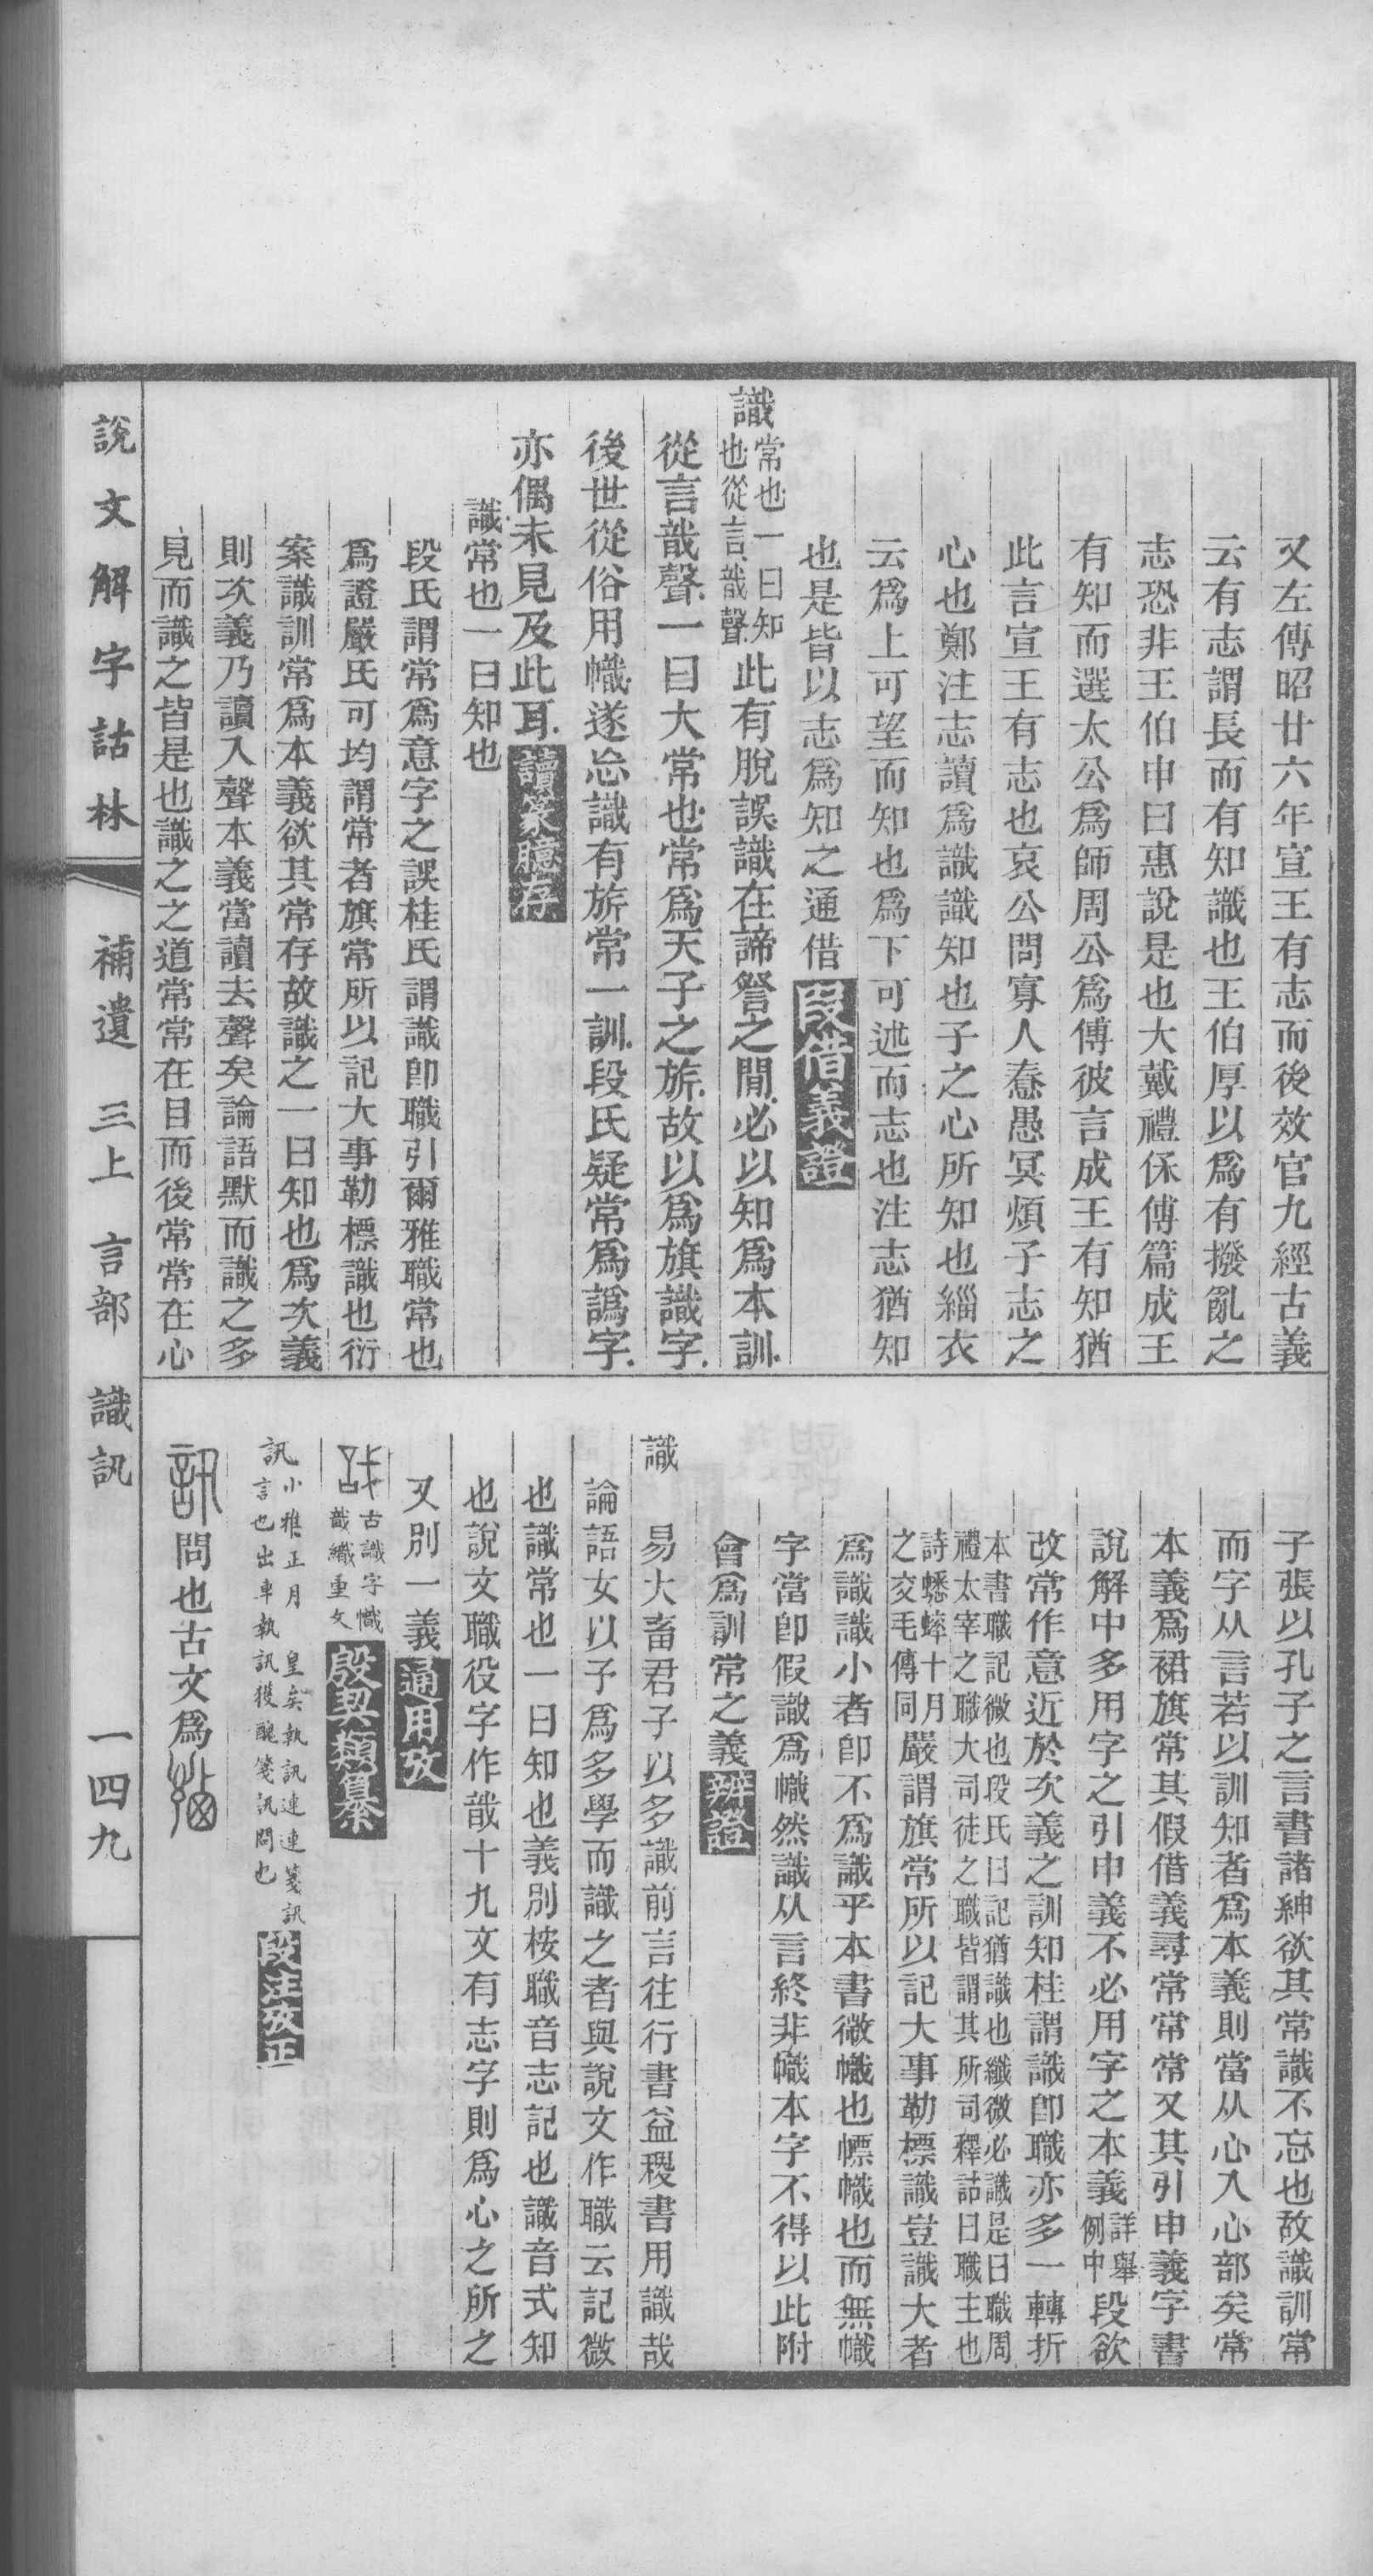 又左傳昭廿六年宣王有志而後效官九經古義
云有志謂長而有知識也王伯厚以爲有撥亂之
志恐非王伯申曰惠說是也大戴禮保傅篇成王
有知而選太公爲師周公爲傅彼言成王有知猶
此言宣王有志也哀公問寡人惷愚冥煩子志之
心也鄭注志讀爲識識知也子之心所知也緇衣
云爲上可望而知也爲下可述而志也注志猶知
也是皆以志爲知之通借叚借義證
識常也一曰知也從言戠聲此有脫誤識在諦詧之閒必以知爲本訓
從言戠聲一曰大常也常爲天子之旂故以爲旗識字
後世從俗用幟遂忘識有旂常一訓段氏疑常爲譌字
亦偶未見及此耳讀篆臆存
識常也一曰知也
段氏謂常爲意字之誤桂氏謂識卽職引爾雅職常也
爲證嚴氏可均謂常者旗常所以記大事勒標識也衍
案識訓常爲本義欲其常存故識之一曰知也爲次義
則次義乃讀入聲本義當讀去聲矣論語默而識之多
見而識之皆是也識之之道常常在目而後常常在心
子張以孔子之言書諸紳欲其常識不忘也故識訓常
而字从言若以訓知者爲本義則當从心入心部矣常
本義爲裙旗常其假借義尋常常常又其引申義字書
說解中多用字之引申義不必用字之本義詳舉例中段欲
改常作意近於次義之訓知桂謂識卽職亦多一轉折
本書職記微也段氏曰記猶識也纖微必識是曰職周禮太宰之職大司徒之職皆謂其所司釋詁曰職主也
詩蟋蟀十月之交毛傳同嚴謂旗常所以記大事勒標識豈識大者
爲識識小者卽不爲識乎本書微幟也幖幟也而無幟
字當卽假識爲幟然識从言終非幟本字不得以此附
會爲訓常之義辨證
識 易大畜君子以多識前言往行書益稷書用識哉
論語女以予爲多學而識之者與說文作職云記微
也識常也一曰知也義別桉職音志記也識音式知
也說文職役字作戠十九文有志字則爲心之所之
又別一義通用攷
古識字幟戠織重文殷契類纂
訊小雅正月 皇矣執訊連連箋訊言也出車執訊獲醜箋訊問也段注攷正
訊問也古文爲
說文解字詁林 補遺 三上 言部 識訊 一四九